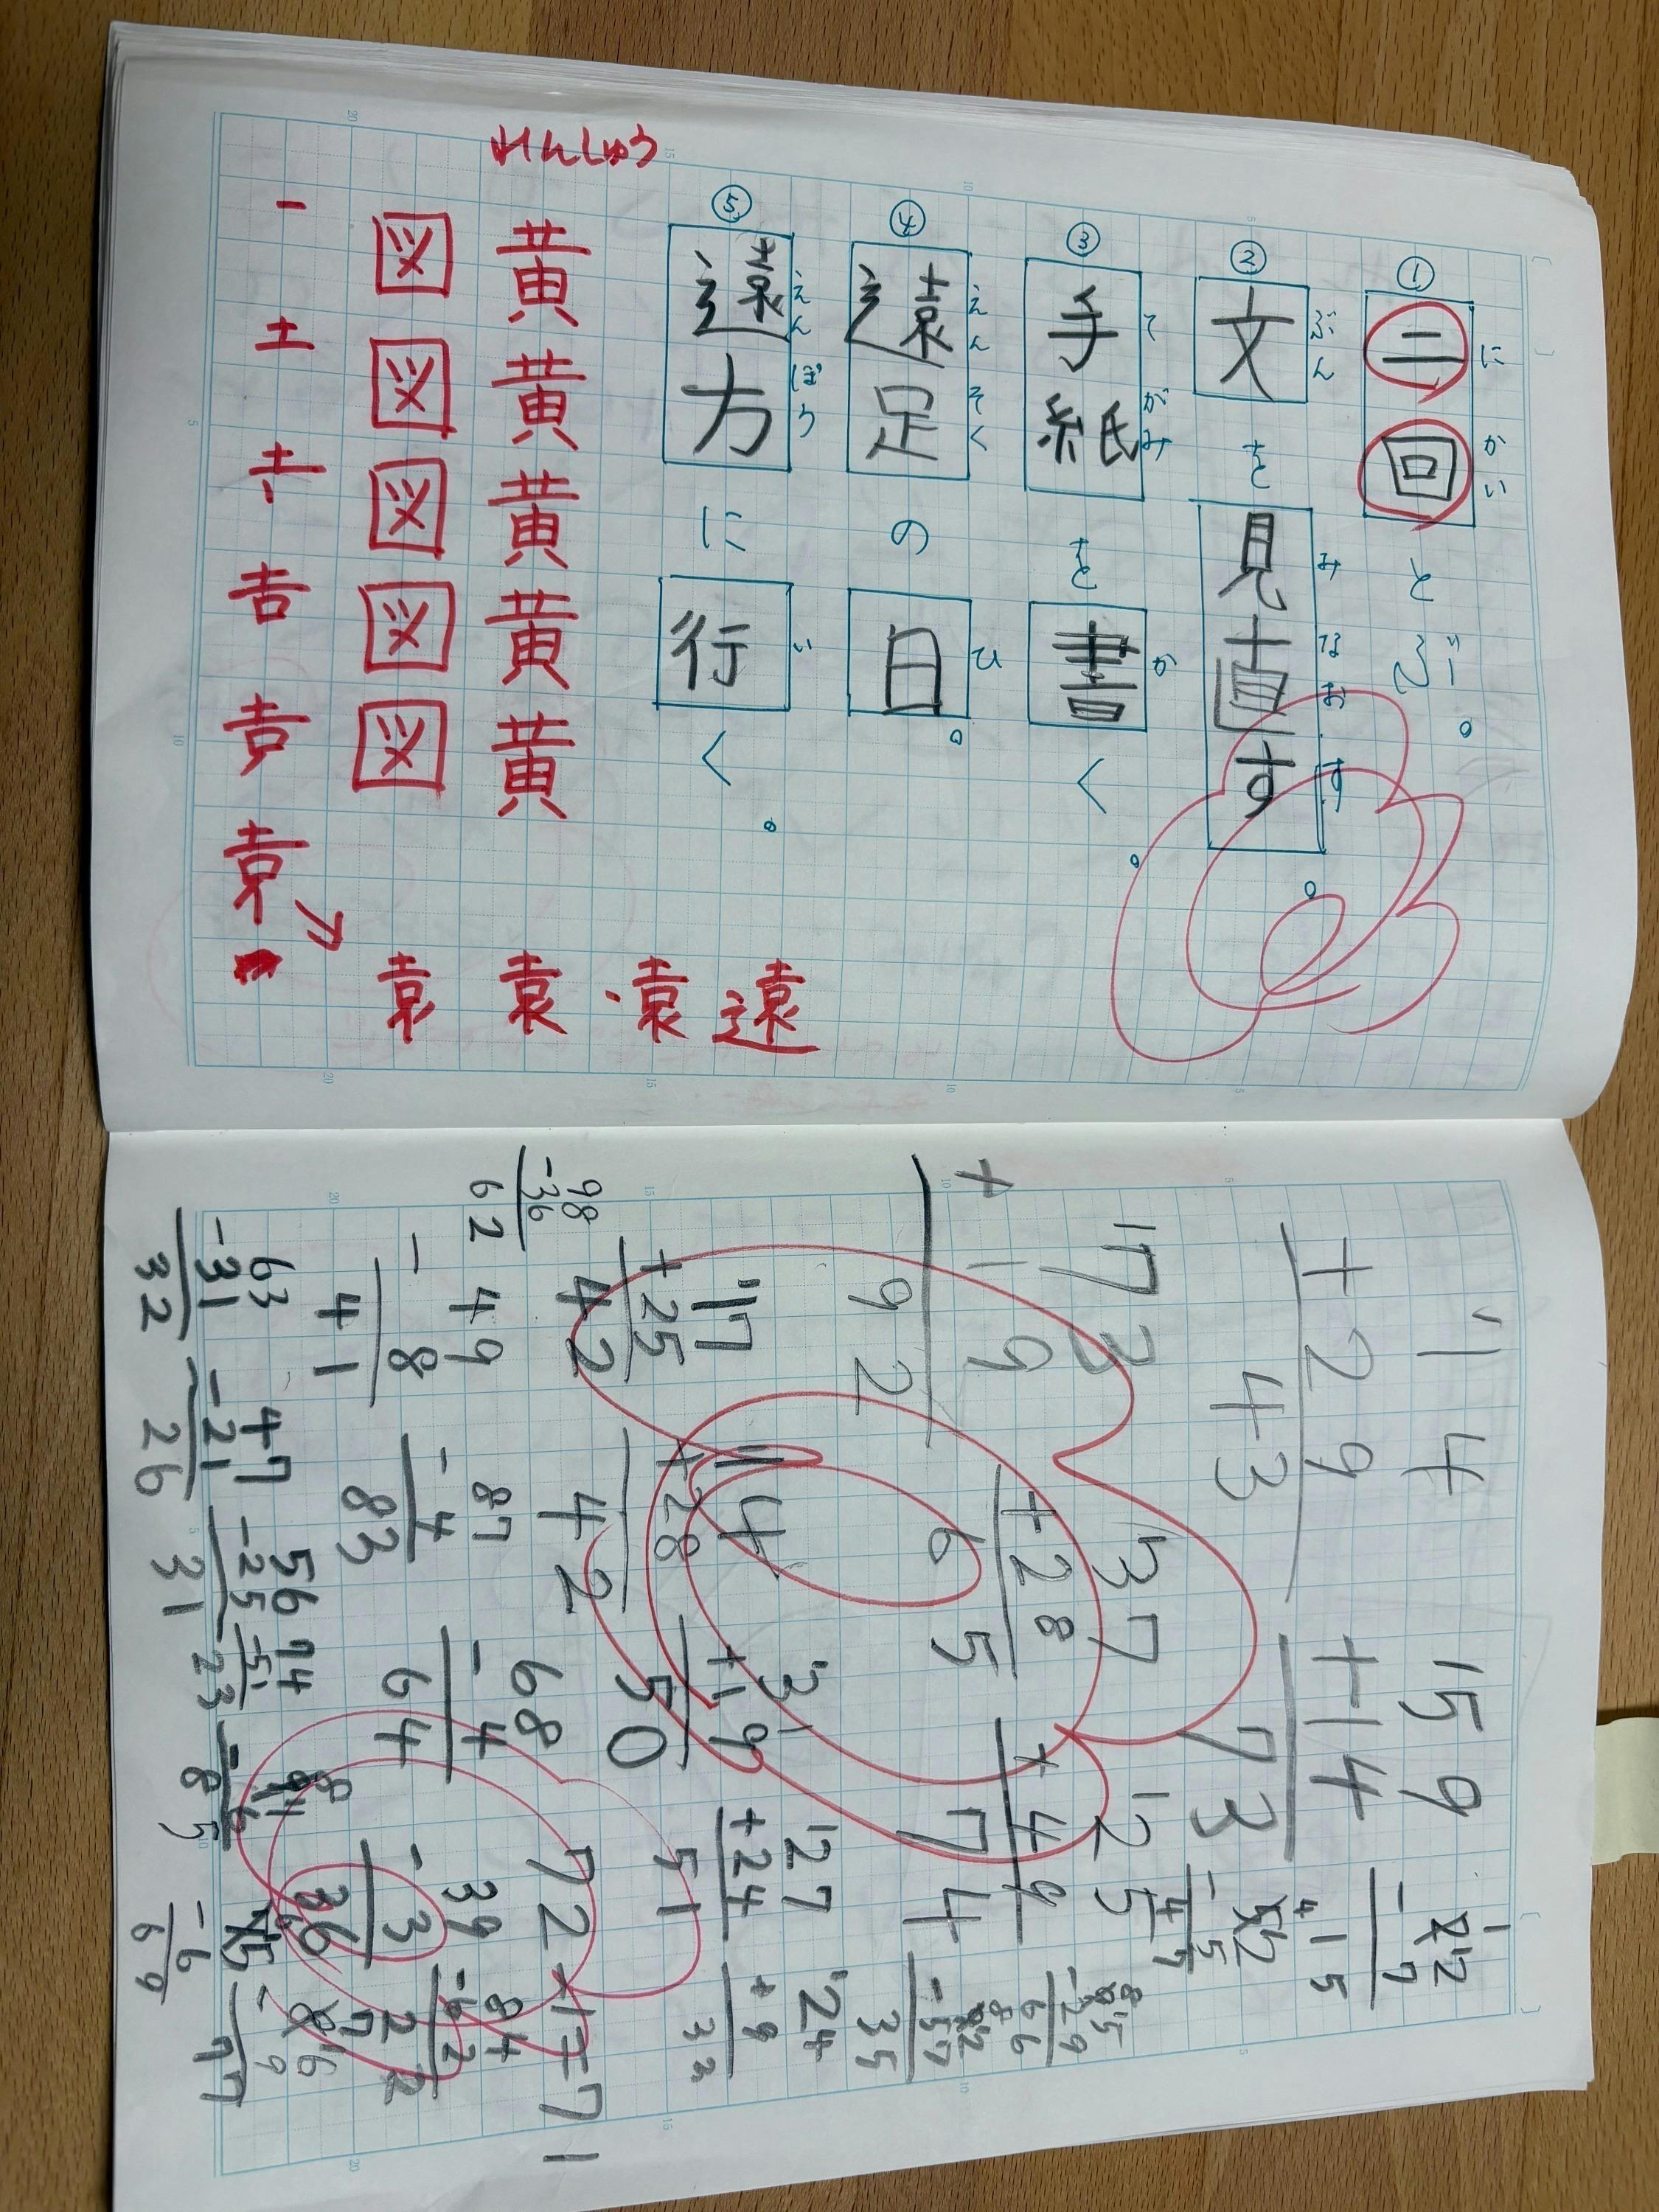 ① 二回とびこむ。
にかい
② 文を見直す。
ぶん みなおす
③ 手紙を書く。
てがみ か
④ 遠足の日。
えんそく ひ
⑤ 遠方に行く。
えんぽう い
れんしゅう
黄黄黄黄黄
図図図図図
遠
14
+29
43
159
+14
73
173
+19
92
37
+28
65
125
+49
74
17
+25
42
14
+28
42
31
+19
50
127
+24
51
24
+8
32
98
-36
62
49
-8
41
87
-4
83
68
-4
64
39
-3
36
84
-62
22
72-1=71
63
-31
32
47
-21
26
56
-25
31
74
-51
23
91
-6
85